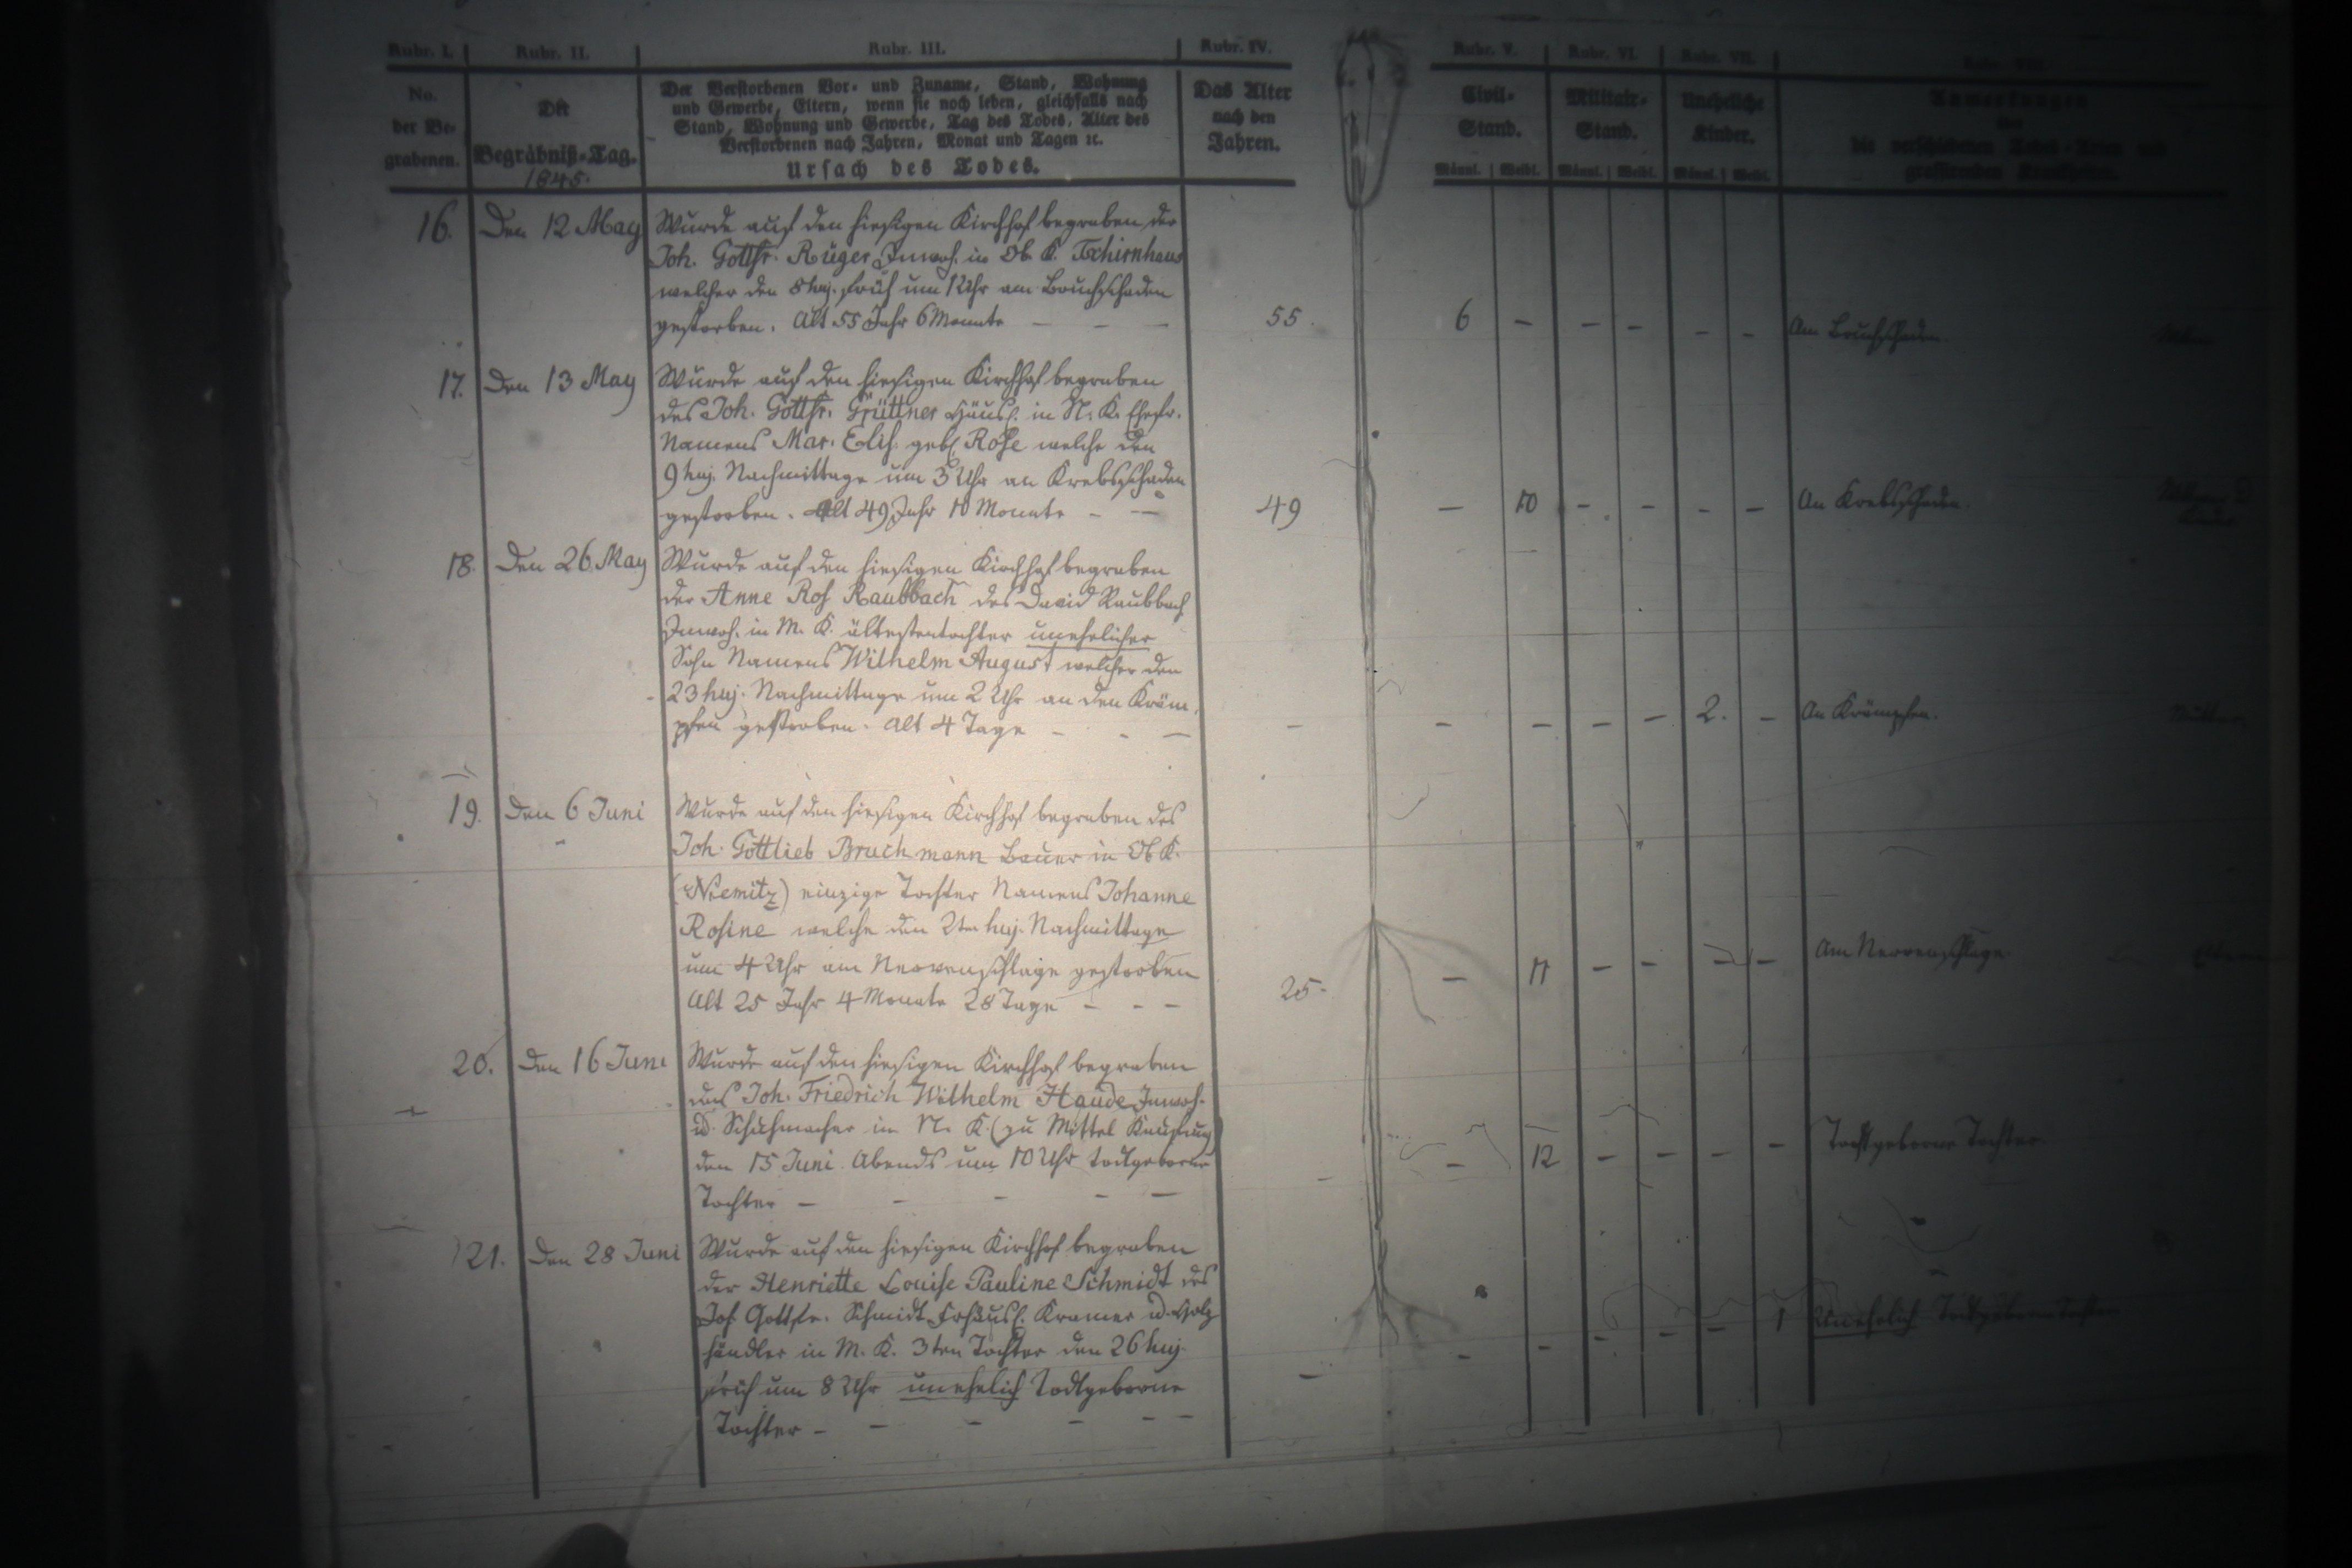 Rubr. I. Rubr. II. Rubr. III. Rubr. IV. Rubr. V. Rubr. VI. Rubr. VII.
No. der Be- grabenen.
Der Begräbniß-Tag.
1845.
Der Verstorbenen Vor- und Zuname, Stand, Wohnung
und Gewerbe, Eltern, wenn sie noch leben, gleichfalls nach
Stand, Wohnung und Gewerbe, Tag des Todes, Alter des
Verstorbenen nach Jahren, Monat und Tagen ꝛc.
Ursach des Todes.
Das Alter
nach den
Jahren.
Civil-
Stand.
Männl. Weibl.
Militair-
Stand.
Männl. Weibl.
Uneheliche
Kinder.
Männl. Weibl.
Anmerkungen
die verschiedenen Todes-Arten und
grassirenden Krankheiten.
16. Den 12 May
Wurde auf den hiesigen Kirchhof begraben der
Joh. Gottfr. Rüger Inwoh. in Ob. K. Tschirnhaus
welcher den 8 huj. früh um 1 Uhr am Bruchschaden
gestorben. Alt 55 Jahr 6 Monate – – –
55. 6 – – – – – Am Bruchschaden.
17. Den 13 May
Wurde auf den hiesigen Kirchhof begraben
des Joh. Gottfr. Grüttner Häusl. in N. K. Ehefr.
Namens Mar. Elis. geb. Rose welche den
9 huj. Nachmittage um 3 Uhr an Krebsschaden
gestorben. Alt 49 Jahr 10 Monate – –
49 – 10 – – – – An Krebsschaden.
18. Den 26 May
Wurde auf den hiesigen Kirchhof begraben
der Anne Ros Raubbach des David Raubbach
Inwoh. in M. K. ältestentochter unehelicher
Sohn Namens Wilhelm August welcher den
23 huj. Nachmittage um 2 Uhr an den Kräm-
pfen gestorben. Alt 4 Tage – – –
– – – – – 2. – An Krämpfen.
19. Den 6 Juni
Wurde auf den hiesigen Kirchhof begraben des
Joh. Gottlieb Bruchmann Bauer in Ob. K.
(Niemitz) einzige Tochter Namens Johanne
Rosine welche den 2ten huj. Nachmittage
um 4 Uhr am Nervenschlage gestorben
Alt 25 Jahr 4 Monate 28 Tage – – –
25. – 11 – – – – Am Nervenschlage.
20. Den 16 Juni
Wurde auf den hiesigen Kirchhof begraben
des Joh. Friedrich Wilhelm Haude Inwoh.
u. Schuhmacher in N. K. (zu Mittel Kaufung)
den 15 Juni Abends um 10 Uhr todtgeborne
Tochter – – – – –
– – 12 – – – – Todtgeborne Tochter
21. Den 28 Juni
Wurde auf den hiesigen Kirchhof begraben
der Henriette Louise Pauline Schmidt des
Joh Gottfr. Schmidt Kramer u. Holz
händler in M. K. 3ten Tochter den 26 huj.
früh um 8 Uhr unehelich todtgeborne
Tochter – – – – –
– – – – – – 1 Unehelich Todtgeborne Tochter